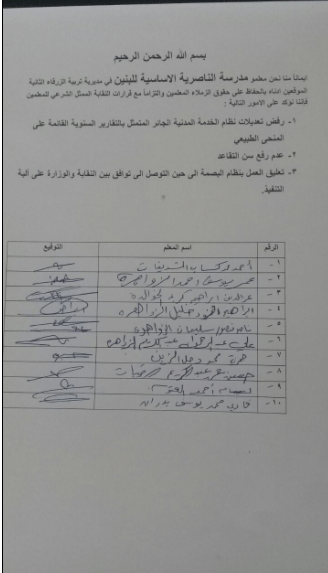 بسم الله الرحمن الرحيم
ايماناً منا نحن معلمو مدرسة الناصرية الاساسية للبنين في مديرية تربية الزرقاء الثانية
الموقعين ادناه بالحفاظ على حقوق الزملاء المعلمين والتزاماً مع قرارات النقابة الممثل الشرعي للمعلمين
فاننا نؤكد على الامور التالية :
١- رفض تعديلات نظام الخدمة المدنية الجائر المتمثل بالتقارير السنوية القائمة على
المنحى الطبيعي
٢- عدم رفع سن التقاعد
٣- تعليق العمل بنظام البصمة الى حين التوصل الى توافق بين النقابة والوزارة على الية
التنفيذ.
الرقم اسم المعلم التوقيع
١- أحمد
٢- عمر يوسف احمد الزواهرة
٣- عزالدين ابراهيم الخوالده
٤- ابراهيم خليل الزواهره
٥- سليمان الزواهره
٦- علي عبد الزواهره
٧- حمزة محمد
٨- حسين عبد الكريم
٩- أحمد
١٠- فادي محمد يوسف بدران